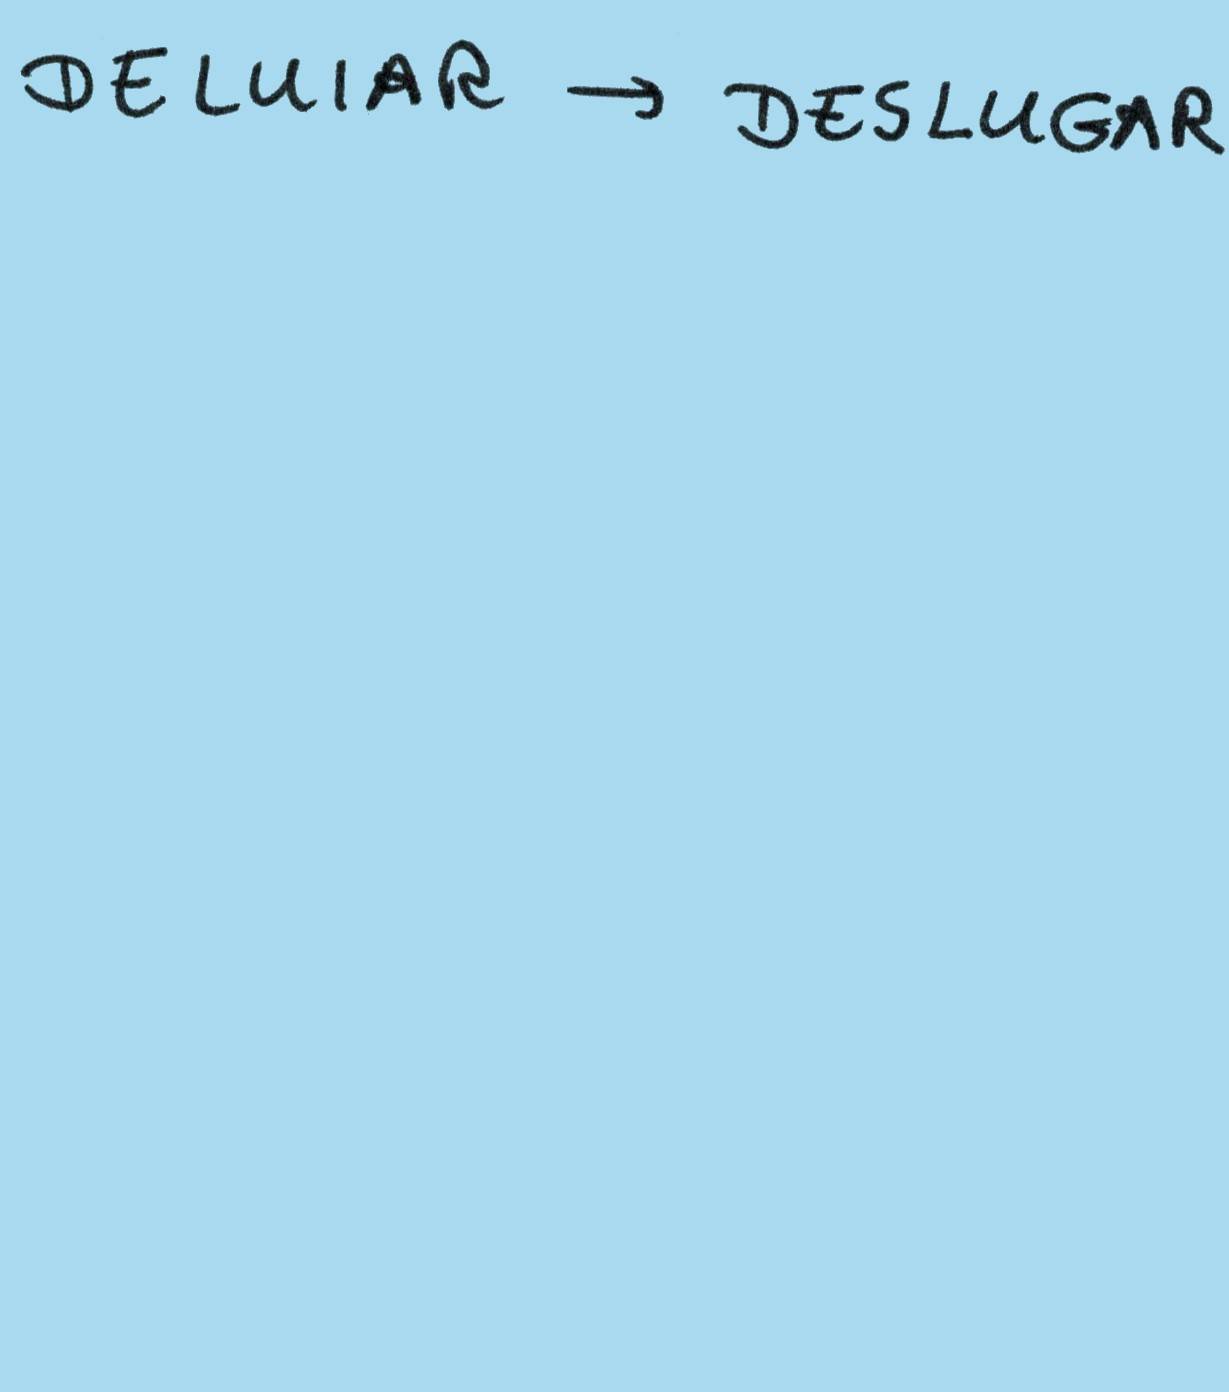 DELUIAR → DESLUGAR